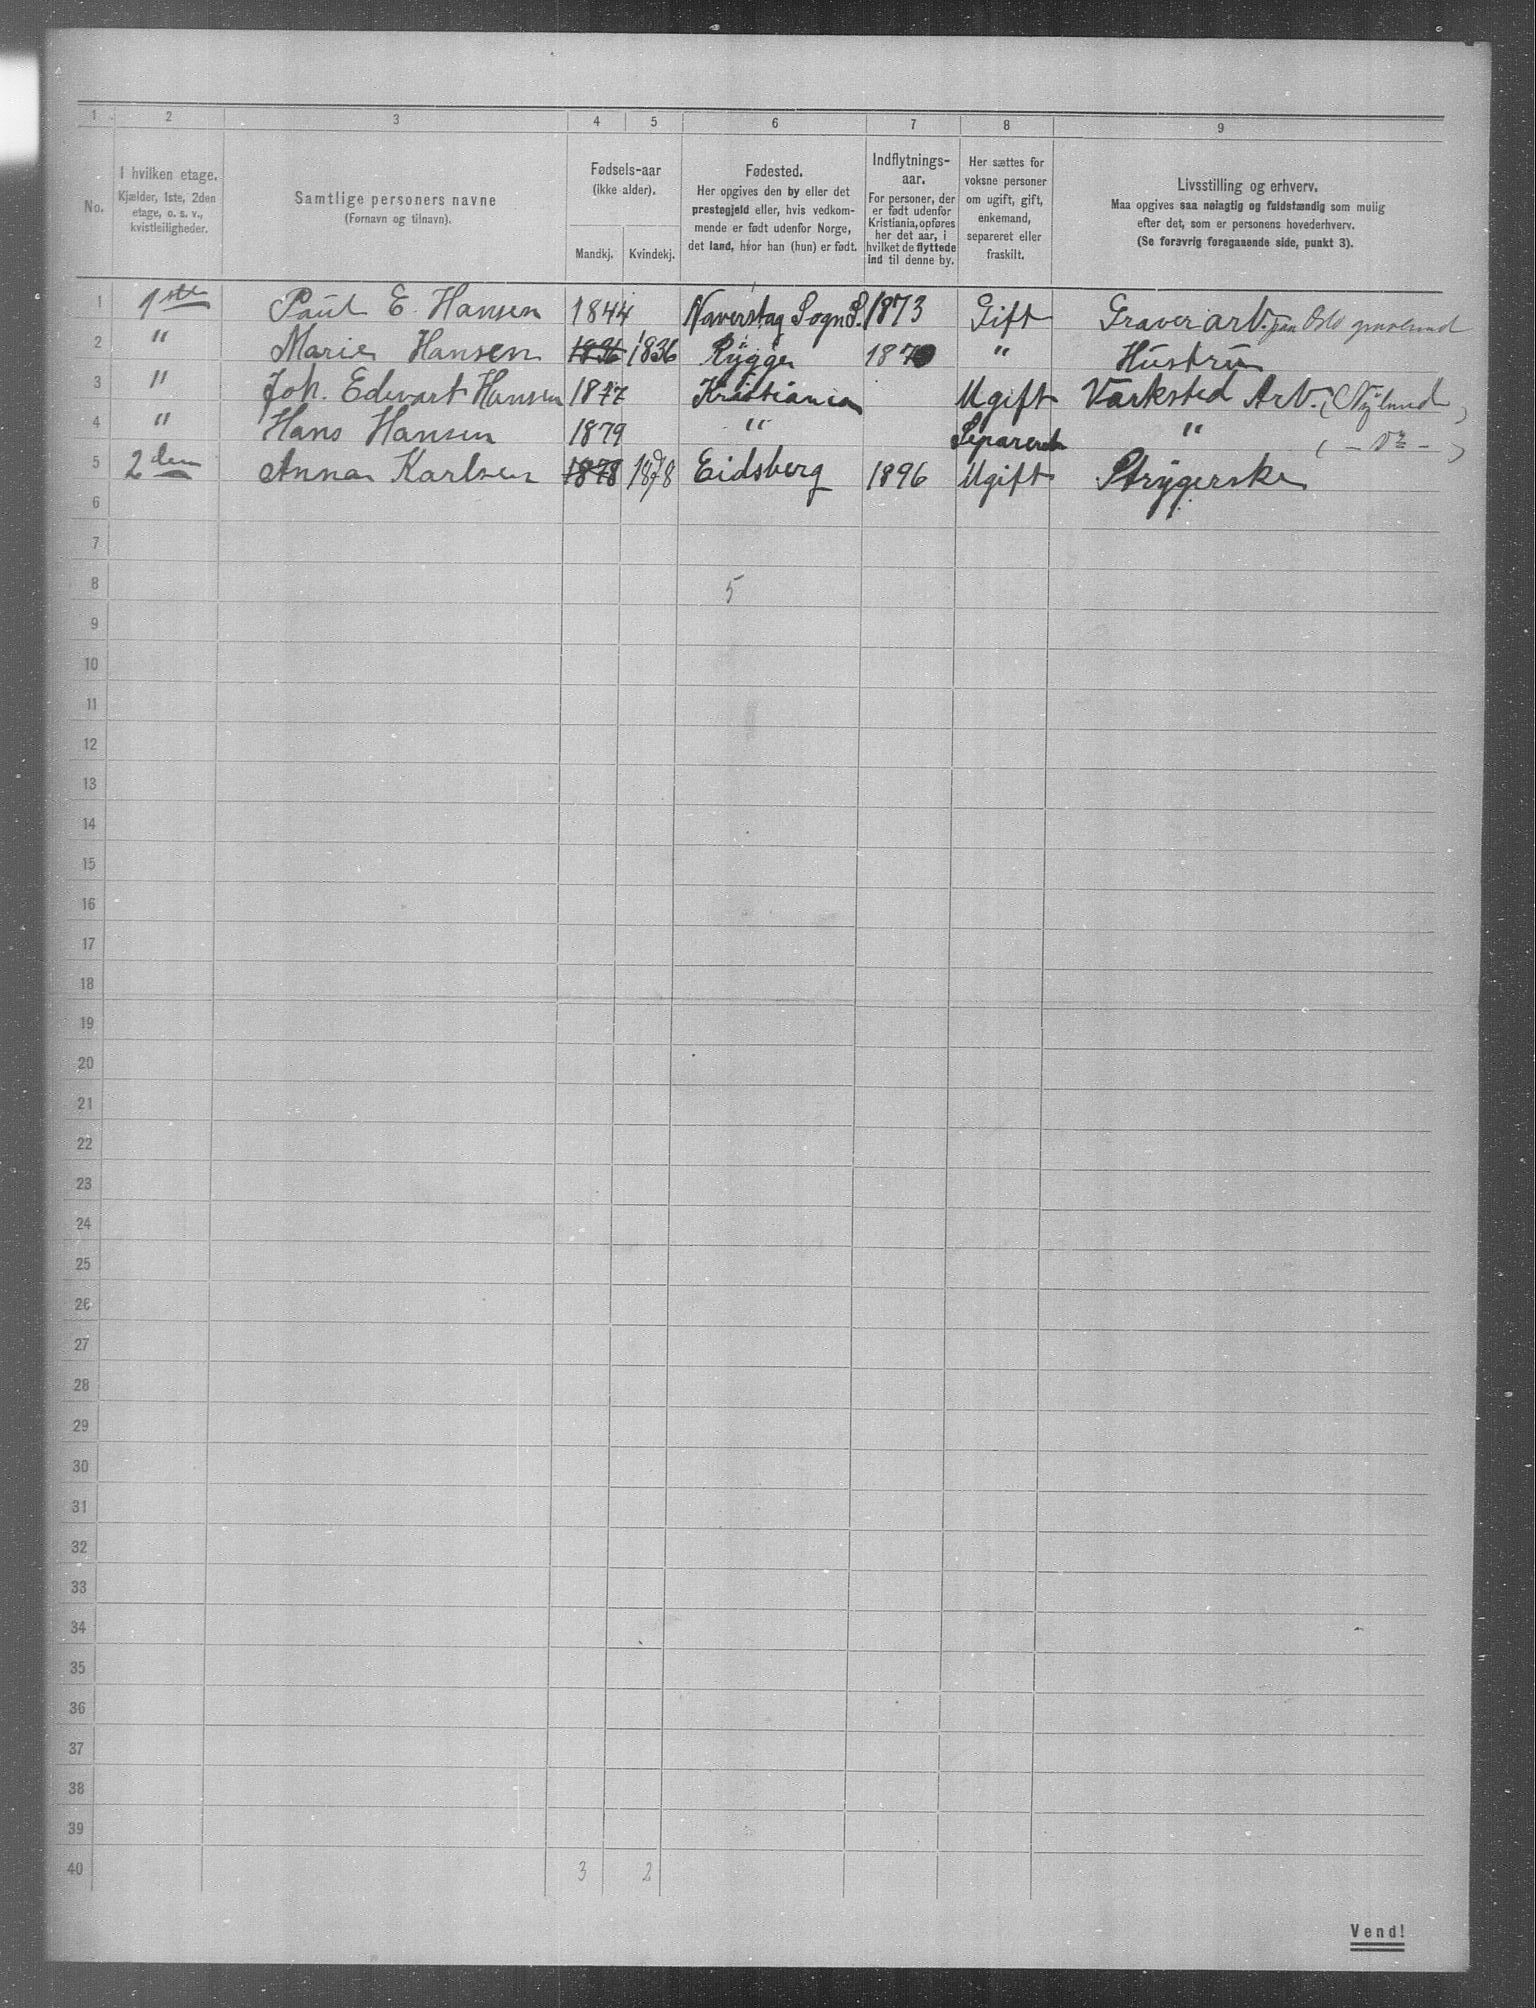 1 2 3 4 5 6 7 8 9
No.
I hvilken etage.
Kjælder, 1ste, 2den
etage, o. s. v.,
kvistleiligheder.
Samtlige personers navne
(Fornavn og tilnavn).
Fødsels-aar
(ikke alder).
Mandkj. Kvindekj.
Fødested.
Her opgives den by eller det
prestegjeld eller, hvis vedkom-
mende er født udenfor Norge,
det land, hvor han (hun) er født.
Indflytnings-
aar.
For personer, der
er født udenfor
Kristiania, opføres
her det aar, i
hvilket de flyttede
ind til denne by.
Her sættes for
voksne personer
om ugift, gift,
enkemand,
separeret eller
fraskilt.
Livsstilling og erhverv.
Maa opgives saa nøiagtig og fuldstændig som mulig
efter det, som er personens hovederhverv.
(Se forøvrig foregaaende side, punkt 3).
1 1ste Paul E. Hansen 1844 Naverstag Sogn S. 1873 Gift Graverarb. paa Oslo
2 " Marie Hansen 1836 1836 Rygge 1870 " Hustru
3 " Joh. Edwart Hansen 1877 Kristiania Ugift Værksted Arb. (Nylund)
4 " Hans Hansen 1879 " Separeret " ( - Do - )
5 2den Anna Karlsen 1878 1878 Eidsberg 1896 Ugift Strygerske
6
7
8 5
9
10
11
12
13
14
15
16
17
18
19
20
21
22
23
24
25
26
27
28
29
30
31
32
33
34
35
36
37
38
39
40 3 2
Vend!